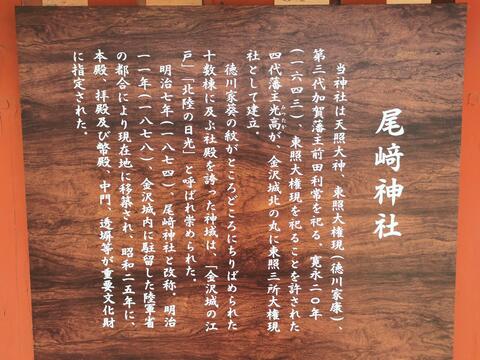 尾﨑神社
当神社は天照大神、東照大権現(徳川家康)、
第三代加賀藩主前田利常を祀る。寛永二〇年
(一六四三)、東照大権現を祀ることを許された
四代藩主光高が、金沢城北の丸に東照三所大権現
みつたか
社として建立、
徳川家葵の紋がところどころにちりばめられた
十数棟に及ぶ社殿を誇った神域は、「金沢城の江
戸」「北陸の日光」と呼ばれ崇められた。
明治七年(一八七四)、尾﨑神社と改称。明治
一一年(一八七八)、金沢城内に駐留した陸軍省
の都合により現在地に移築され、昭和二五年に、
本殿、拝殿及び幣殿、中門、透塀等が重要文化財
に指定された。